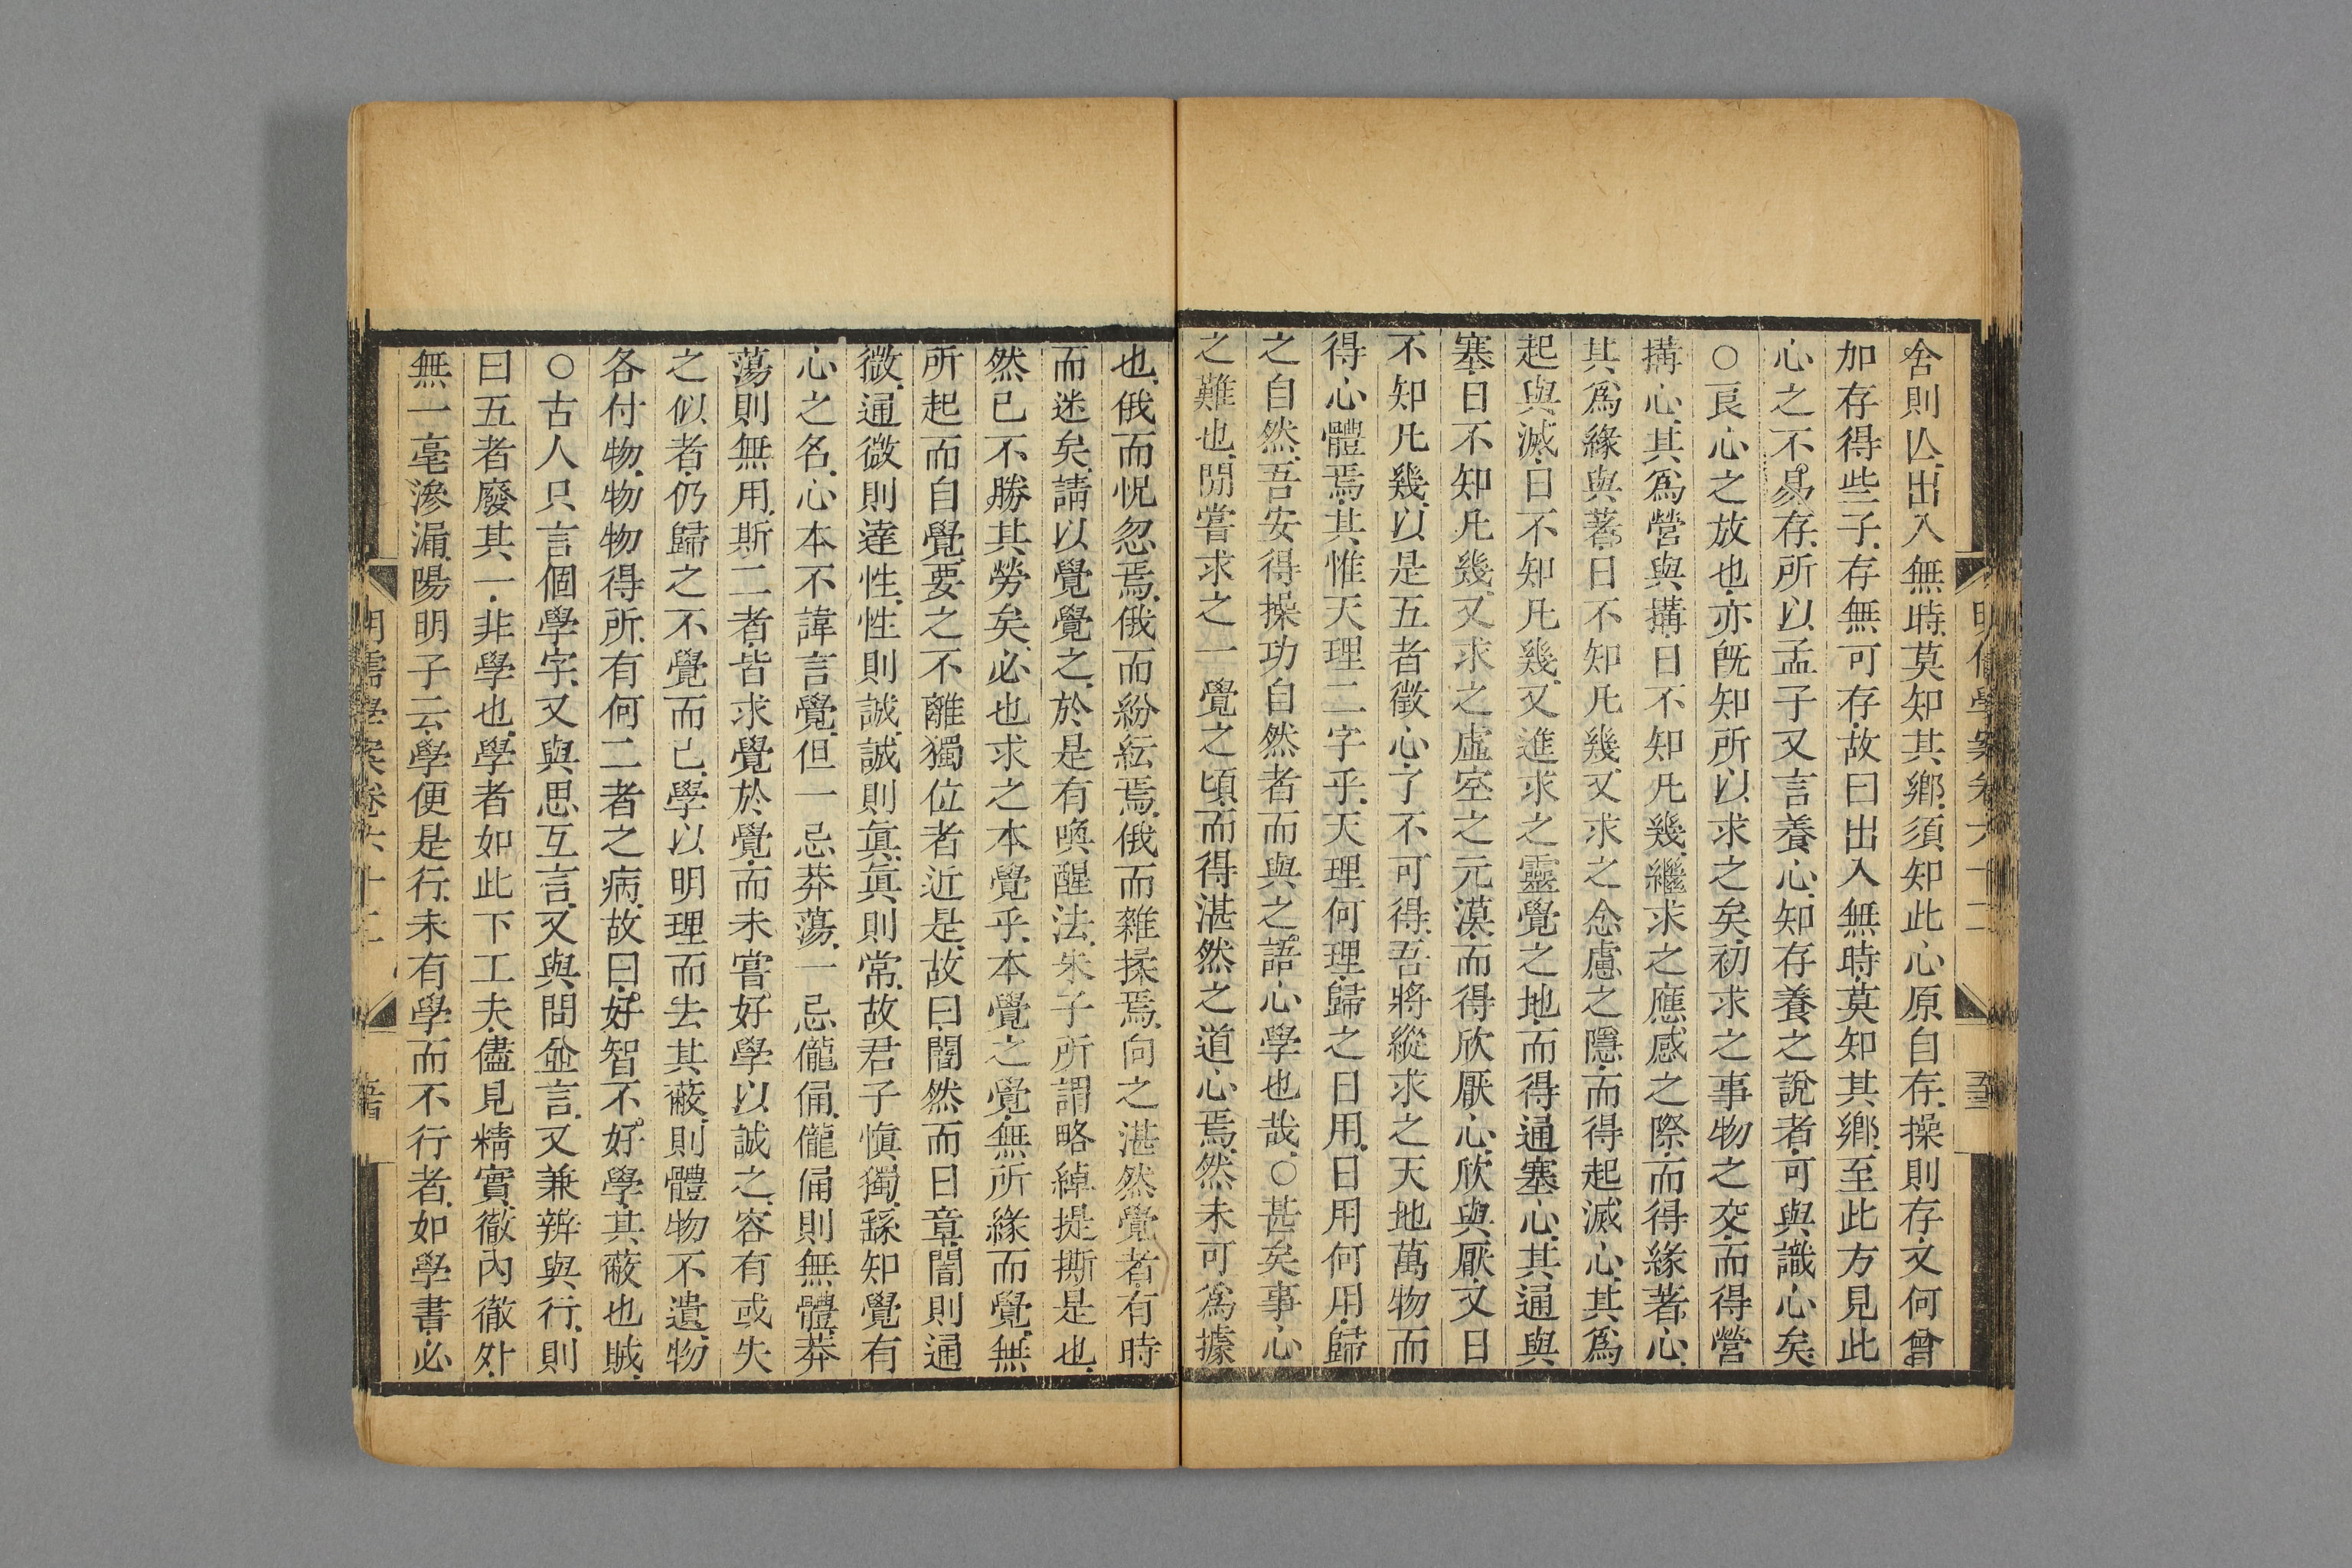 舍則亾出入無時莫知其鄉須知此心原自存操則存又何曾
加存得些子存無可存故曰出入無時莫知其鄉至此方見此
心之不易存所以孟子又言養心知存養之說者可與識心矣
○良心之放也亦旣知所以求之矣初求之事物之交而得營
搆心其爲營與搆日不知凡幾繼求之應感之際而得緣著心
其爲緣與著日不知凡幾又求之念慮之隱而得起滅心其爲
起與滅日不知凡幾又進求之靈覺之地而得通塞心其通與
塞日不知凡幾又求之虛空之元漠而得欣厭心欣與厭又日
不知凡幾以是五者徵心了不可得吾將縱求之天地萬物而
得心體焉其惟天理二字乎天理何理歸之日用日用何用歸
之自然吾安得操功自然者而與之語心學也哉○甚矣事心
之難也閒嘗求之一覺之頃而得湛然之道心焉然未可爲據
也俄而怳忽焉俄而紛紜焉俄而雜揉焉向之湛然覺者有時
而迷矣請以覺覺之於是有喚醒法朱子所謂略綽提撕是也
然已不勝其勞矣必也求之本覺乎本覺之覺無所緣而覺無
所起而自覺要之不離獨位者近是故曰闇然而日章闇則通
微通微則達性性則誠誠則眞眞則常故君子愼獨繇知覺有
心之名心本不諱言覺但一忌莽蕩一忌儱侗儱侗則無體莽
蕩則無用斯二者皆求覺於覺而未嘗好學以誠之容有或失
之似者仍歸之不覺而已學以明理而去其蔽則體物不遺物
各付物物物得所有何二者之病故曰好智不好學其蔽也賊
○古人只言個學字又與思互言又與問並言又兼辨與行則
曰五者廢其一非學也學者如此下工夫儘見精實徹內徹外
無一毫滲漏陽明子云學便是行未有學而不行者如學書必
明儒學案卷六十二